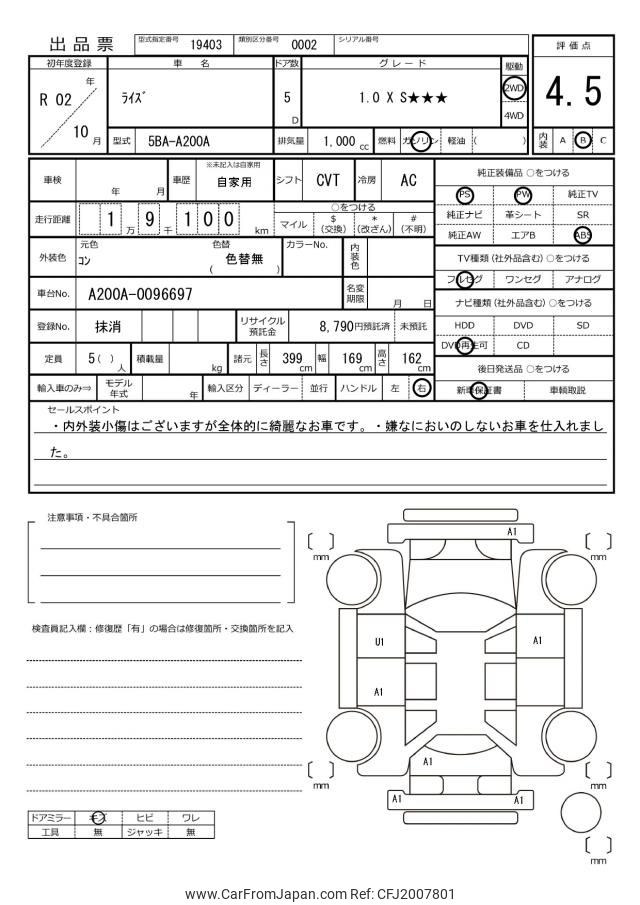 出品票 型式指定番号 19403 類別区分番号 0002 シリアル番号
評価点
初年度登録 車名 ドア数 グレード 駆動
R 02 年 ライズ 5 D 1.0 X S★★★ 2WD 4WD
4.5
10 月 型式 5BA-A200A 排気量 1,000 cc 燃料 ガソリン 軽油 ( )
内装 A B C
車検 年 月 車歴 ※未記入は自家用 自家用 シフト CVT 冷房 AC
純正装備品 ○をつける
PS PW 純正TV
走行距離 1 万 9 千 1 0 0 km ○をつける
マイル $ (交換) * (改ざん) # (不明)
純正ナビ 革シート SR
純正AW エアB ABS
外装色 元色 コン 色替 ( 色替無 ) カラーNo. 内装色
TV種類 (社外品含む) ○をつける
フルセグ ワンセグ アナログ
車台No. A200A-0096697 名変期限 月 日
ナビ種類 (社外品含む) ○をつける
登録No. 抹消 リサイクル預託金 8,790円預託済 未預託
HDD DVD SD
DVD再生可 CD
定員 5 ( ) 人 積載量 kg 諸元 長さ 399 cm 幅 169 cm 高さ 162 cm
後日発送品 ○をつける
輸入車のみ⇒ モデル年式 年 輸入区分 ディーラー 並行 ハンドル 左 右
新車保証書 車輌取説
セールスポイント
・内外装小傷はございますが全体的に綺麗なお車です。・嫌なにおいのしないお車を仕入れまし
た。
注意事項・不具合箇所
検査員記入欄：修復歴「有」の場合は修復箇所・交換箇所を記入
A1
mm mm
U1 A1
A1
A1
mm mm
A1 A1
mm
ドアミラー キズ ヒビ ワレ
工具 無 ジャッキ 無
www.CarFromJapan.com Ref: CFJ2007801